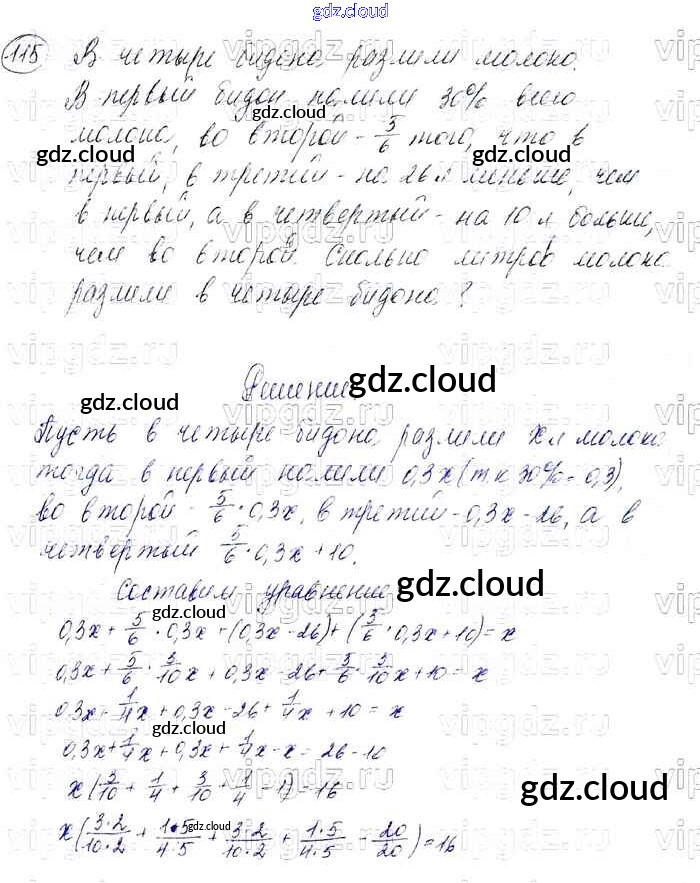 gdz.cloud
115 В четыре бидона разлили молоко.
В первый бидон налили 30% всего
молока, во второй - 5/6 того, что в
первый, в третий - на 26 л меньше, чем
в первый, а в четвертый - на 10 л больше,
чем во второй. Сколько литров молока
разлили в четыре бидона?
Решение.
Пусть в четыре бидона разлили x л молока
тогда в первый налили 0,3x (т.к 30% = 0,3),
во второй - 5/6 · 0,3x, в третий - 0,3x - 26, а в
четвертый 5/6 · 0,3x + 10.
Составим уравнение
0,3x + 5/6 · 0,3x + (0,3x - 26) + (5/6 · 0,3x + 10) = x
0,3x + 5/6 · 3/10 x + 0,3x - 26 + 5/6 · 3/10 x + 10 = x
0,3x + 1/4 x + 0,3x - 26 + 1/4 x + 10 = x
0,3x + 1/4 x + 0,3x + 1/4 x - x = 26 - 10
x (3/10 + 1/4 + 3/10 + 1/4 - 1) = 16
x (3·2/10·2 + 1·5/4·5 + 3·2/10·2 + 1·5/4·5 - 20/20) = 16
gdz.cloud
vipgdz.ru